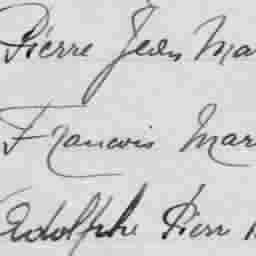 Pierre Jean Mar
Francois Mar
Adolphe Pierr